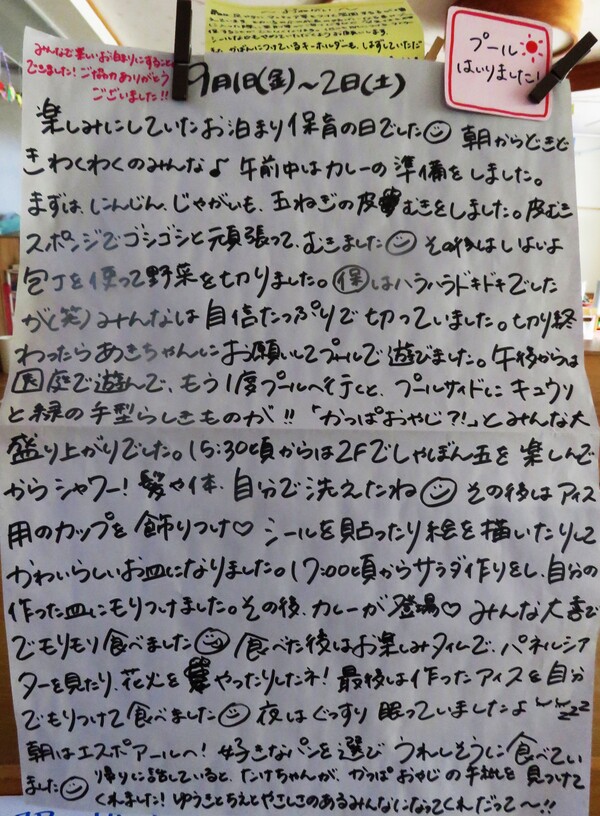 みんなで楽しいお泊まりにすることが
できました！ご協力ありがとう
ございました!!
プール
はいりました！
9月1日(金)～2日(土)
楽しみにしていたお泊まり保育の日でした 朝からどきど
きわくわくのみんな♪ 午前中はカレーの準備をしました。
まずは、にんじん、じゃがいも、玉ねぎの皮むきをしました。皮むき
スポンジでゴシゴシと頑張って、むきました その後はいよいよ
包丁を使って野菜を切りました。保はハラハラドキドキでした
が(笑)みんなは自信たっぷりで切っていました。切り終
わったらあきちゃんにお願いしてプールで遊びました。午後からは
園庭で遊んで、もう1度プールへ行くと、プールサイドにキュウリ
と緑の手型らしきものが!!「かっぱおやじ?!」とみんな大
盛り上がりでした。15:30頃からは2Fでしゃぼん玉を楽しんで
からシャワー！髪や体、自分で洗えたね その後はアイス
用のカップを飾りつけ♡ シールを貼ったり絵を描いたりして
かわいらしいお皿になりました。17:00頃からサラダ作りをし、自分の
作った皿にもりつけました。その後、カレーが登場♡ みんな大喜び
でモリモリ食べました 食べた後はお楽しみタイムで、パネルシア
ターを見たり、花火をやったりしたネ！最後は作ったアイスを自分
でもりつけて食べました 夜はぐっすり眠っていましたよ zzz
朝はエスポアールへ！好きなパンを選びうれしそうに食べてい
ました 帰りに話していると、たけちゃんが、かっぱおやじの手紙を見つけて
くれました！ゆうきとちえとやさしさのあるみんなになってくれだって～!!